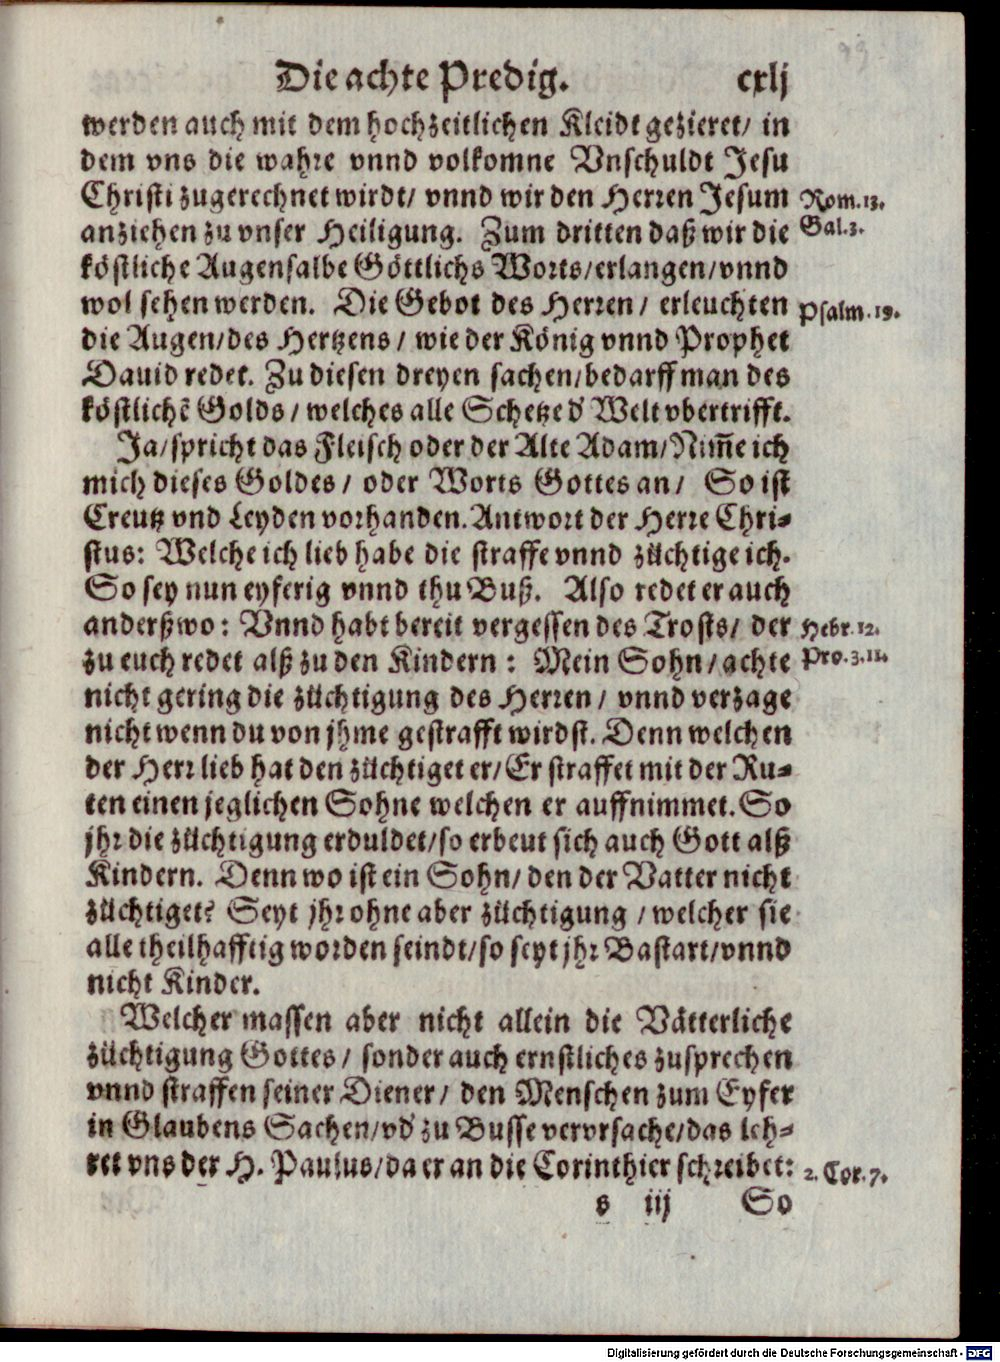 Die achte Predig. cxlj
werden auch mit dem hochzeitlichen Kleidt gezieret/ in
dem vns die wahre vnnd volkomne Vnschuldt Jesu
Christi zugerechnet wirdt/ vnnd wir den Herren Jesum
Rom. 13.
anziehen zu vnser Heiligung. Zum dritten daß wir die
Gal. 3.
köstliche Augensalbe Göttlichs Worts/erlangen/vnnd
wol sehen werden. Die Gebot des Herren/ erleuchten
Psalm. 19.
die Augen/des Hertzens/ wie der König vnnd Prophet
Dauid redet. Zu diesen dreyen sachen/bedarff man des
köstlichē Golds/welches alle Schetze d' Welt vbertrifft.
Ja/spricht das Fleisch oder der Alte Adam/Nim̄e ich
mich dieses Goldes/ oder Worts Gottes an/ So ist
Creutz vnd Leyden vorhanden. Antwort der Herre Chri-
stus: Welche ich lieb habe die straffe vnnd züchtige ich.
So sey nun eyferig vnnd thu Buß. Also redet er auch
anderßwo: Vnnd habt bereit vergessen des Trosts/ der
Hebr. 12.
zu euch redet alß zu den Kindern: Mein Sohn/achte
Pro. 3. 11.
nicht gering die züchtigung des Herren/ vnnd verzage
nicht wenn du von jhme gestrafft wirdst. Denn welchen
der Herr lieb hat den züchtiget er/ Er straffet mit der Ru-
ten einen jeglichen Sohne welchen er auffnimmet. So
jhr die züchtigung erduldet/so erbeut sich auch Gott alß
Kindern. Denn wo ist ein Sohn/ den der Vatter nicht
züchtiget? Seyt jhr ohne aber züchtigung/welcher sie
alle theilhafftig worden seindt/so seyt jhr Bastart/vnnd
nicht Kinder.
Welcher massen aber nicht allein die Vätterliche
züchtigung Gottes/ sonder auch ernstliches zusprechen
vnnd straffen seiner Diener/ den Menschen zum Eyfer
in Glaubens Sachen/vd' zu Busse vervrsache/das leh-
ret vns der H. Paulus/da er an die Corinthier schreibet:
2. Cor. 7.
s iij So
Digitalisierung gefördert durch die Deutsche Forschungsgemeinschaft - DFG